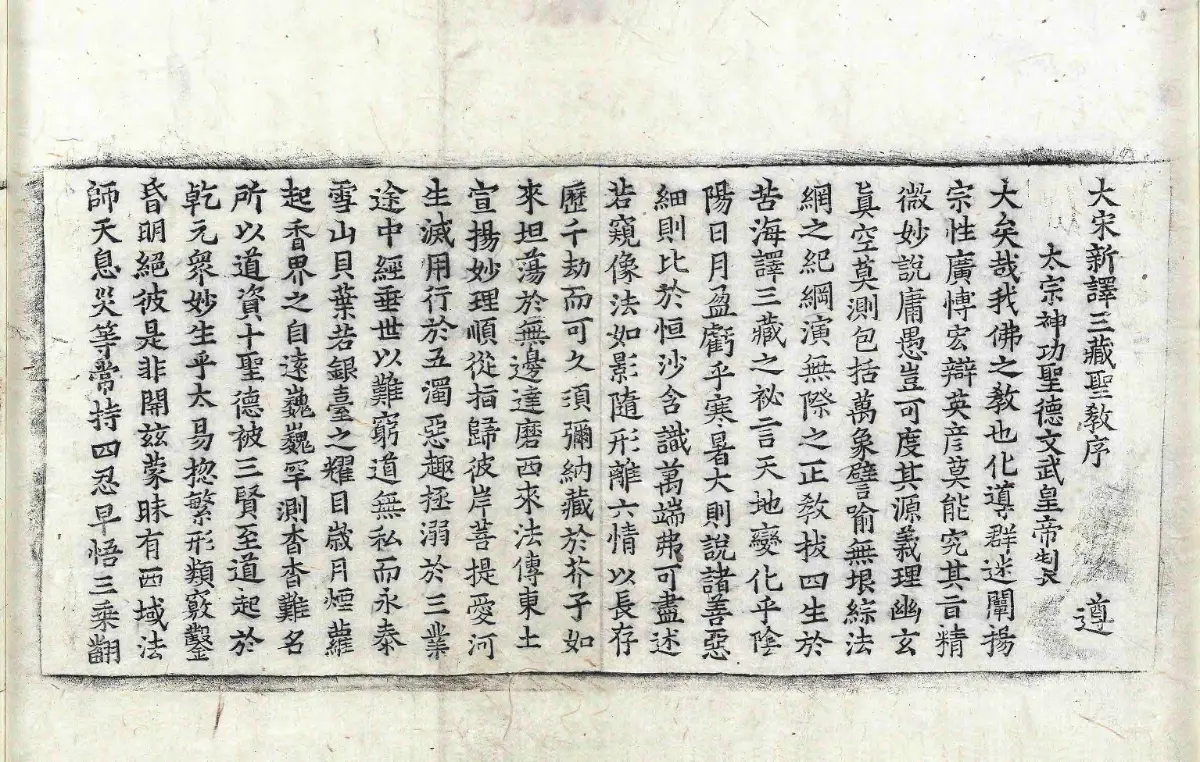 大宋新譯三藏聖教序　遵
太宗神功聖德文武皇帝製
大矣哉我佛之教也化導群迷闡揚
宗性廣愽宏辯英彦莫能究其旨精
微妙說庸愚豈可度其源義理幽玄
真空莫測包括萬象譬喻無垠綜法
網之紀綱演無際之正教拔四生於
苦海譯三藏之祕言天地變化乎陰
陽日月盈虧乎寒暑大則說諸善惡
細則比於恒沙含識萬端弗可盡述
若窺像法如影隨形離六情以長存
歷千劫而可久須彌納藏於芥子如
來坦蕩於無邊達磨西來法傳東土
宣揚妙理順從指歸彼岸菩提愛河
生滅用行於五濁惡趣拯溺於三業
途中經垂世以難窮道無私而永泰
雪山貝葉若銀臺之耀目歲月煙蘿
起香界之自遠巍巍罕測杳杳難名
所以道資十聖德被三賢至道起於
乾元衆妙生乎太易惣繁形類竅鑿
昏明絕彼是非開茲蒙昧有西域法
師天息災等常持四忍早悟三乘翻